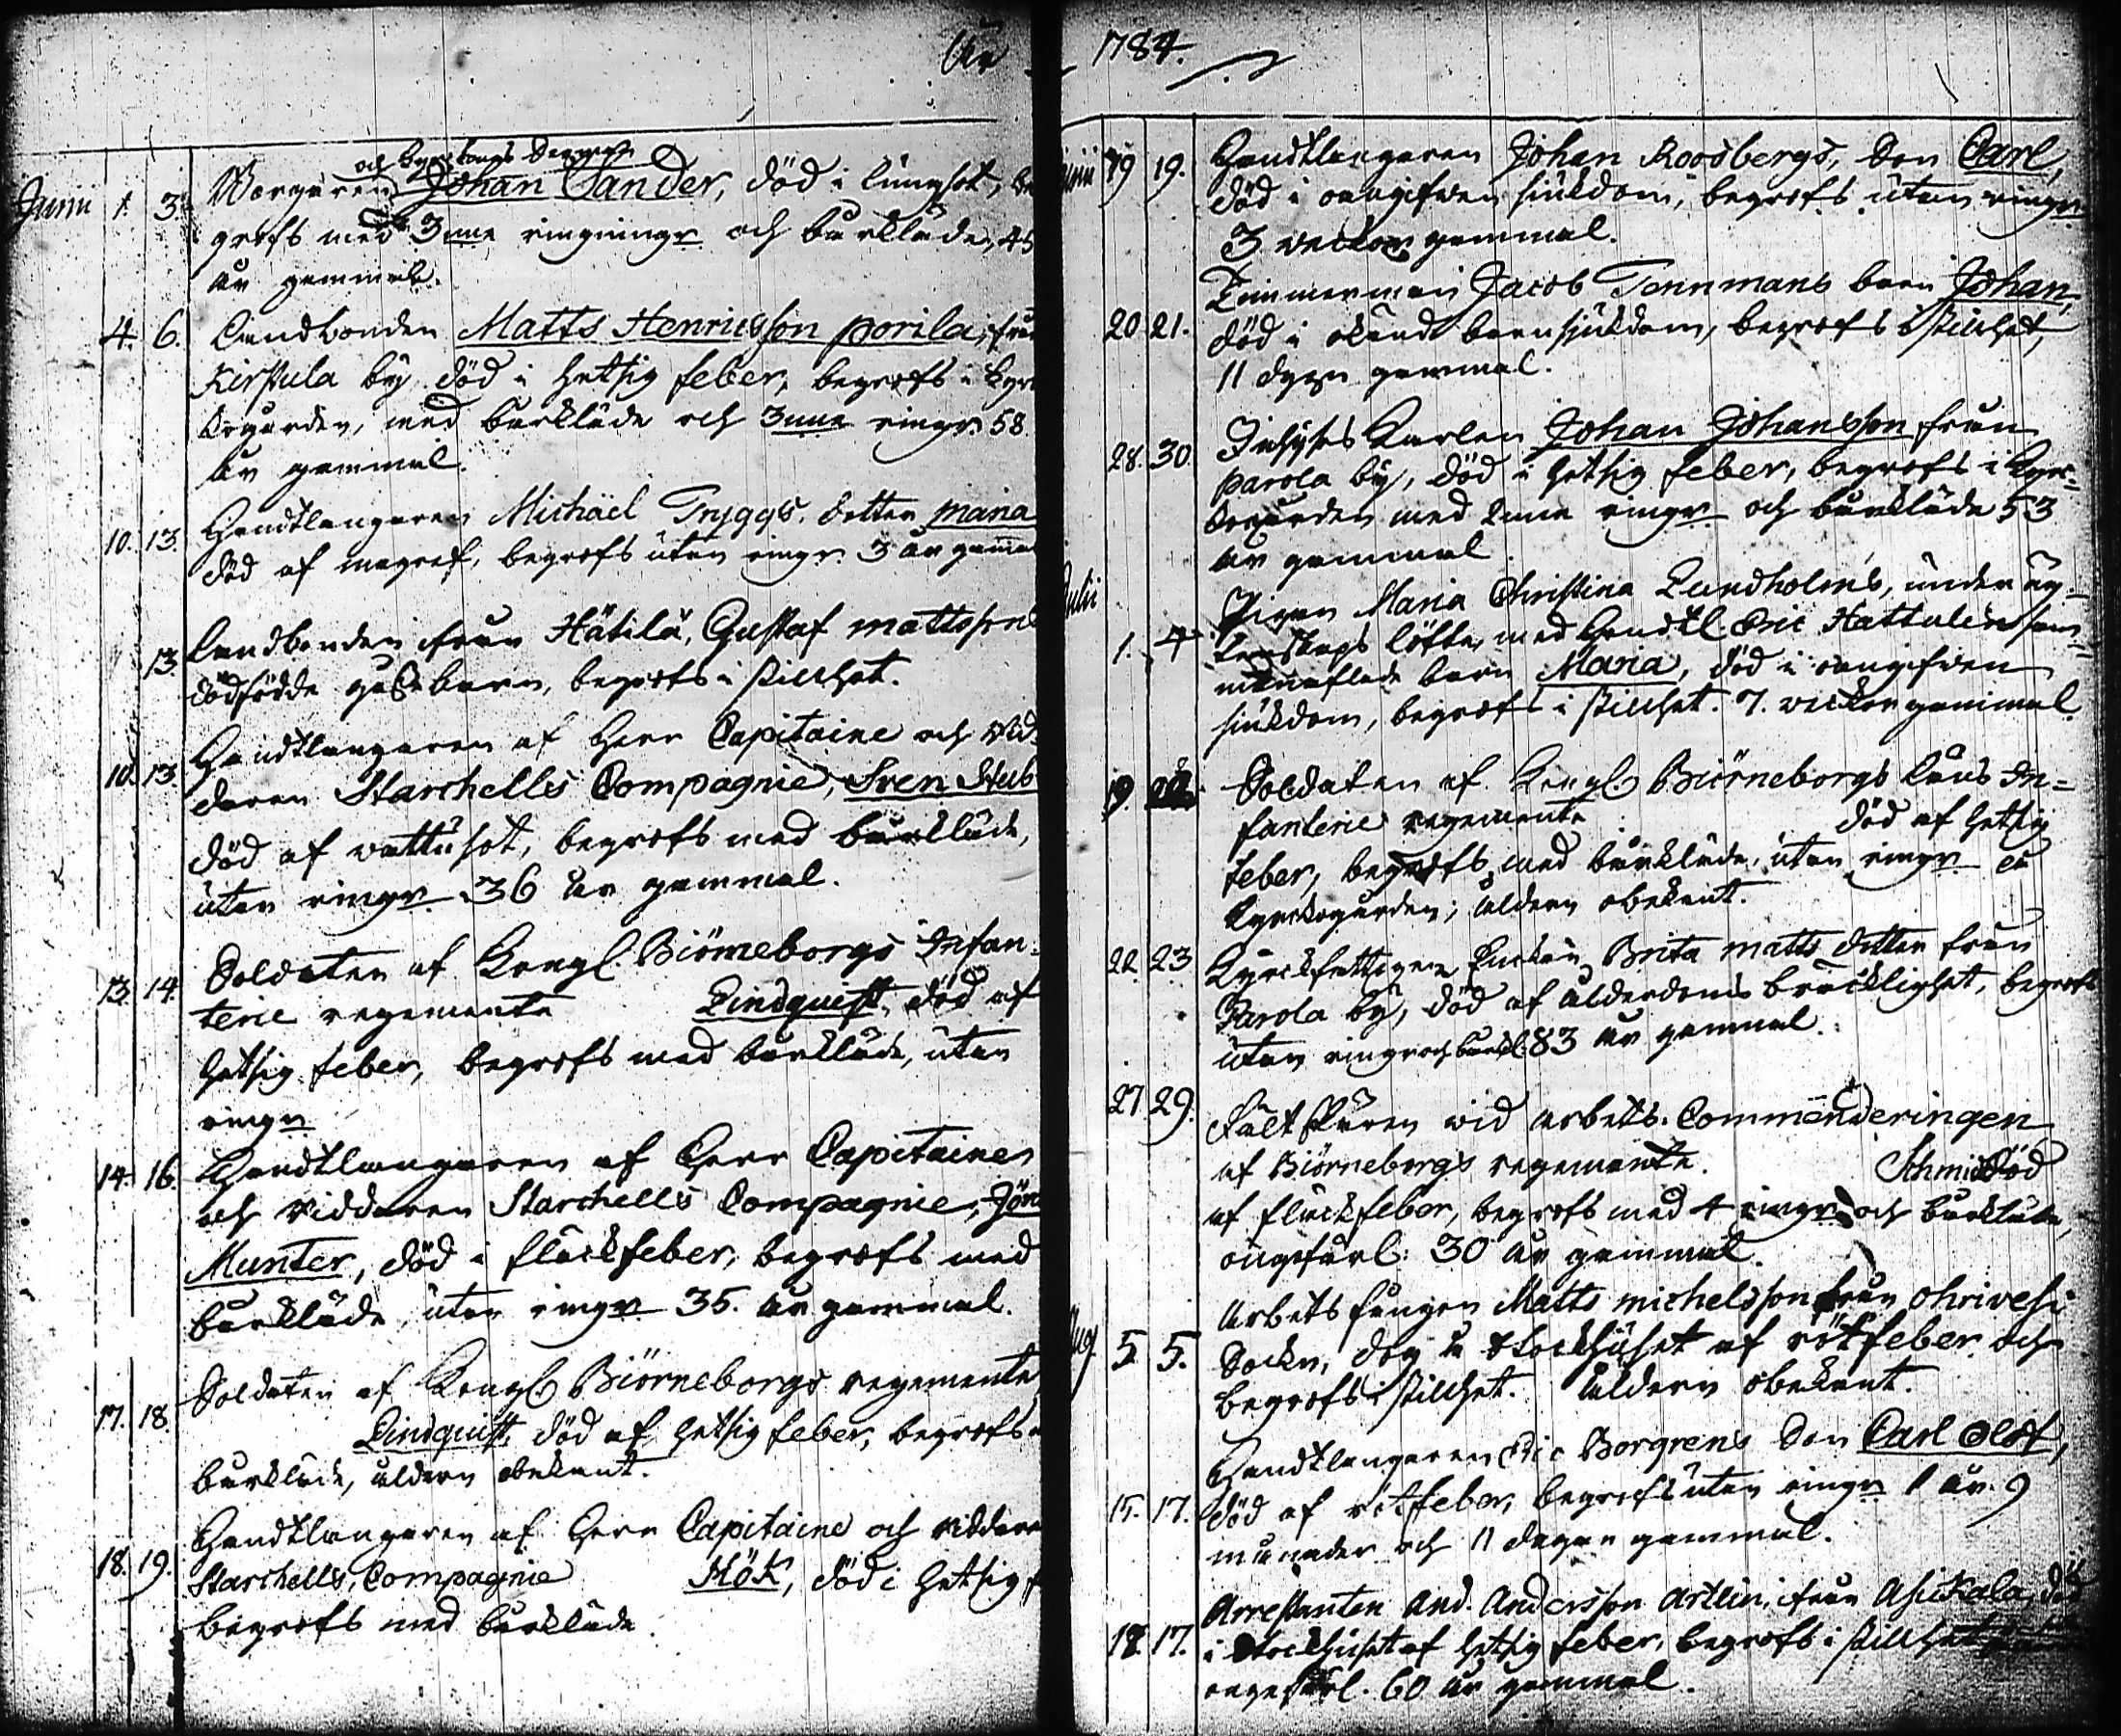 År
Junii 1. 3. Borgaren och Kyrckones Derings Johan Sander, död i lungsot, be
grofs med 3nne ringningr och bårkläde, 45
år gammal.
4. 6. Landbonden Matts Henricsson porila, från
Kirstula by död i hetsig feber, begrofs i Kyrc
kogården, med bårkläde och 3nne ringr. 58.
år gammal.
10. 13. Handtlangaren Michäel Tryggs dotter maria
död af magref, begrofs utan ringr. 3 år gamal
13. Landbonden från Hätilä, Gustaf mattssons
dödfödde gåsse barn, begrofs i stillhet.
10. 13. Handtlangaren af Herr Capitaine och Rid
daren Starchells Compagnie, Sven Stub
död af wattusot, begrofs med bårkläde,
utan ringr 36 år gammal.
13. 14. Soldaten af Kongl. Biörneborgs Infan-
terie regemente Lindquist, död af
hetsig feber, begrofs med bårkläde, utan
ringr
14. 16. Handtlangaren af Herr Capitainen
och Riddaren Starchells Compagnie, Jön
Munter, död i fläckfeber, begrofs med
bårkläde, utan ringr 35. år gammal.
17. 18. Soldaten af Kongl. Biörneborgs regemente
Lindquist, död af hetsig feber, begrofs
bårkläde, åldern obekant.
18. 19. Handtlangaren af Herr Capitaine och Riddare
Starchells Compagnie Hök, död i hetsig f
begrofs med bårkläde.
1784.
Junii 19 19. Handtlangaren Johan Roosbergs, Son Carl,
död i oangifwen siukdom, begrofs utan ringr
3 weckor gammal.
20 21. Timmerman Jacob Tennmans barn Johan,
död i okänd barnsjukdom, begrofs i stillhet,
11 dygn gammal.
28. 30. Inhyses Karlen Johan Johansson från
parola by, död i hetsig feber, begrofs i Kyrc-
kogården med 2nne ringr och bårkläde 53
år gammal
Julii
1. 4 Pigan Maria Christina Lundholms, under äg-
tenskaps löfte, med Handtl. Eric Hattulin sam-
manaflade barn Maria, död i oangifwen
siukdom, begrofs i stillhet. 7. weckor gammal.
19. Soldaten af Kongl. Biörneborgs Läns In-
fanterie regemente död af hetsig
feber, begrofs med bårkläde, utan ringr i
Kyrckogården; åldern obekant.
22 23 Kyrckfattigen Enckan Brita matts dotter från
Parola by, död af ålderdoms bräcklighet, begrofs
utan ringr och bårkl. 83 år gammal.
27 29. Fältskären wid arbets Commenderingen
af Biörneborgs regemente. Schmidt död
af fläckfeber, begrofs med 4 ringr. och bårkläde,
ongefärl: 30 år gammal.
Aug 5 5. Arbetsfången Matts michelsson från ohrivesi
Sockn, dog i stockhuset af rötfeber och
begrofs i stillhet. åldern obekant.
15. 17. Handtlangaren Eric Borgrens Son Carl Olof,
död af rötfeber, begrofs utan ringr 1 år. 9
månader och 11 dagar gammal.
18. 17. Arrestanten And. Andersson Artlin, från Asickala, död
i stockhuset af hetsig feber, begrofs i stillhet
ongefärl. 60 år gammal.